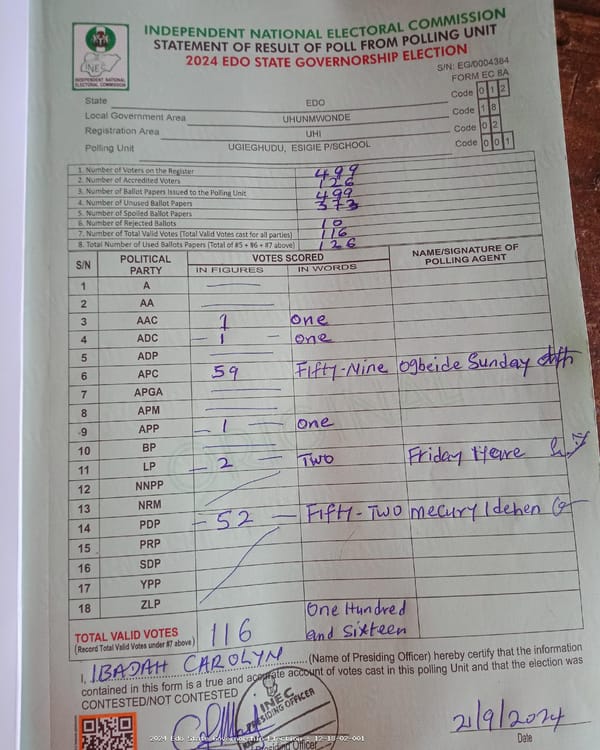 INDEPENDENT NATIONAL ELECTORAL COMMISSION
STATEMENT OF RESULT OF POLL FROM POLLING UNIT
2024 EDO STATE GOVERNORSHIP ELECTION
INEC
INDEPENDENT NATIONAL ELECTORAL COMMISSION
S/N: EG/0004384
FORM EC 8A
State EDO Code 0 1 2
Local Government Area UHUNMWONDE Code 1 8
Registration Area UHI Code 0 2
Polling Unit UGIEGHUDU, ESIGIE P/SCHOOL Code 0 0 1
1. Number of Voters on the Register 499
2. Number of Accredited Voters 126
3. Number of Ballot Papers Issued to the Polling Unit 499
4. Number of Unused Ballot Papers 373
5. Number of Spoiled Ballot Papers
6. Number of Rejected Ballots 10
7. Number of Total Valid Votes (Total Valid Votes cast for all parties) 116
8. Total Number of Used Ballots Papers (Total of #5 + #6 + #7 above) 126
S/N POLITICAL PARTY VOTES SCORED NAME/SIGNATURE OF POLLING AGENT
IN FIGURES IN WORDS
1 A
2 AA
3 AAC 1 one
4 ADC - 1 - one
5 ADP
6 APC 59 Fifty-Nine Ogbeide Sunday
7 APGA
8 APM
9 APP - 1 - one
10 BP
11 LP - 2 - Two Friday
12 NNPP
13 NRM
14 PDP - 52 - Fifty-Two mecury Idehen
15 PRP
16 SDP
17 YPP
18 ZLP
TOTAL VALID VOTES 116 One Hundred and Sixteen
(Record Total Valid Votes under #7 above)
I, IBADAH CAROLYN (Name of Presiding Officer) hereby certify that the information
contained in this form is a true and accurate account of votes cast in this polling Unit and that the election was
CONTESTED/NOT CONTESTED
INEC
PRESIDING OFFICER
21/9/2024
Date
Presiding Officer
2024 Edo State Governorship Election - 12-18-02-001